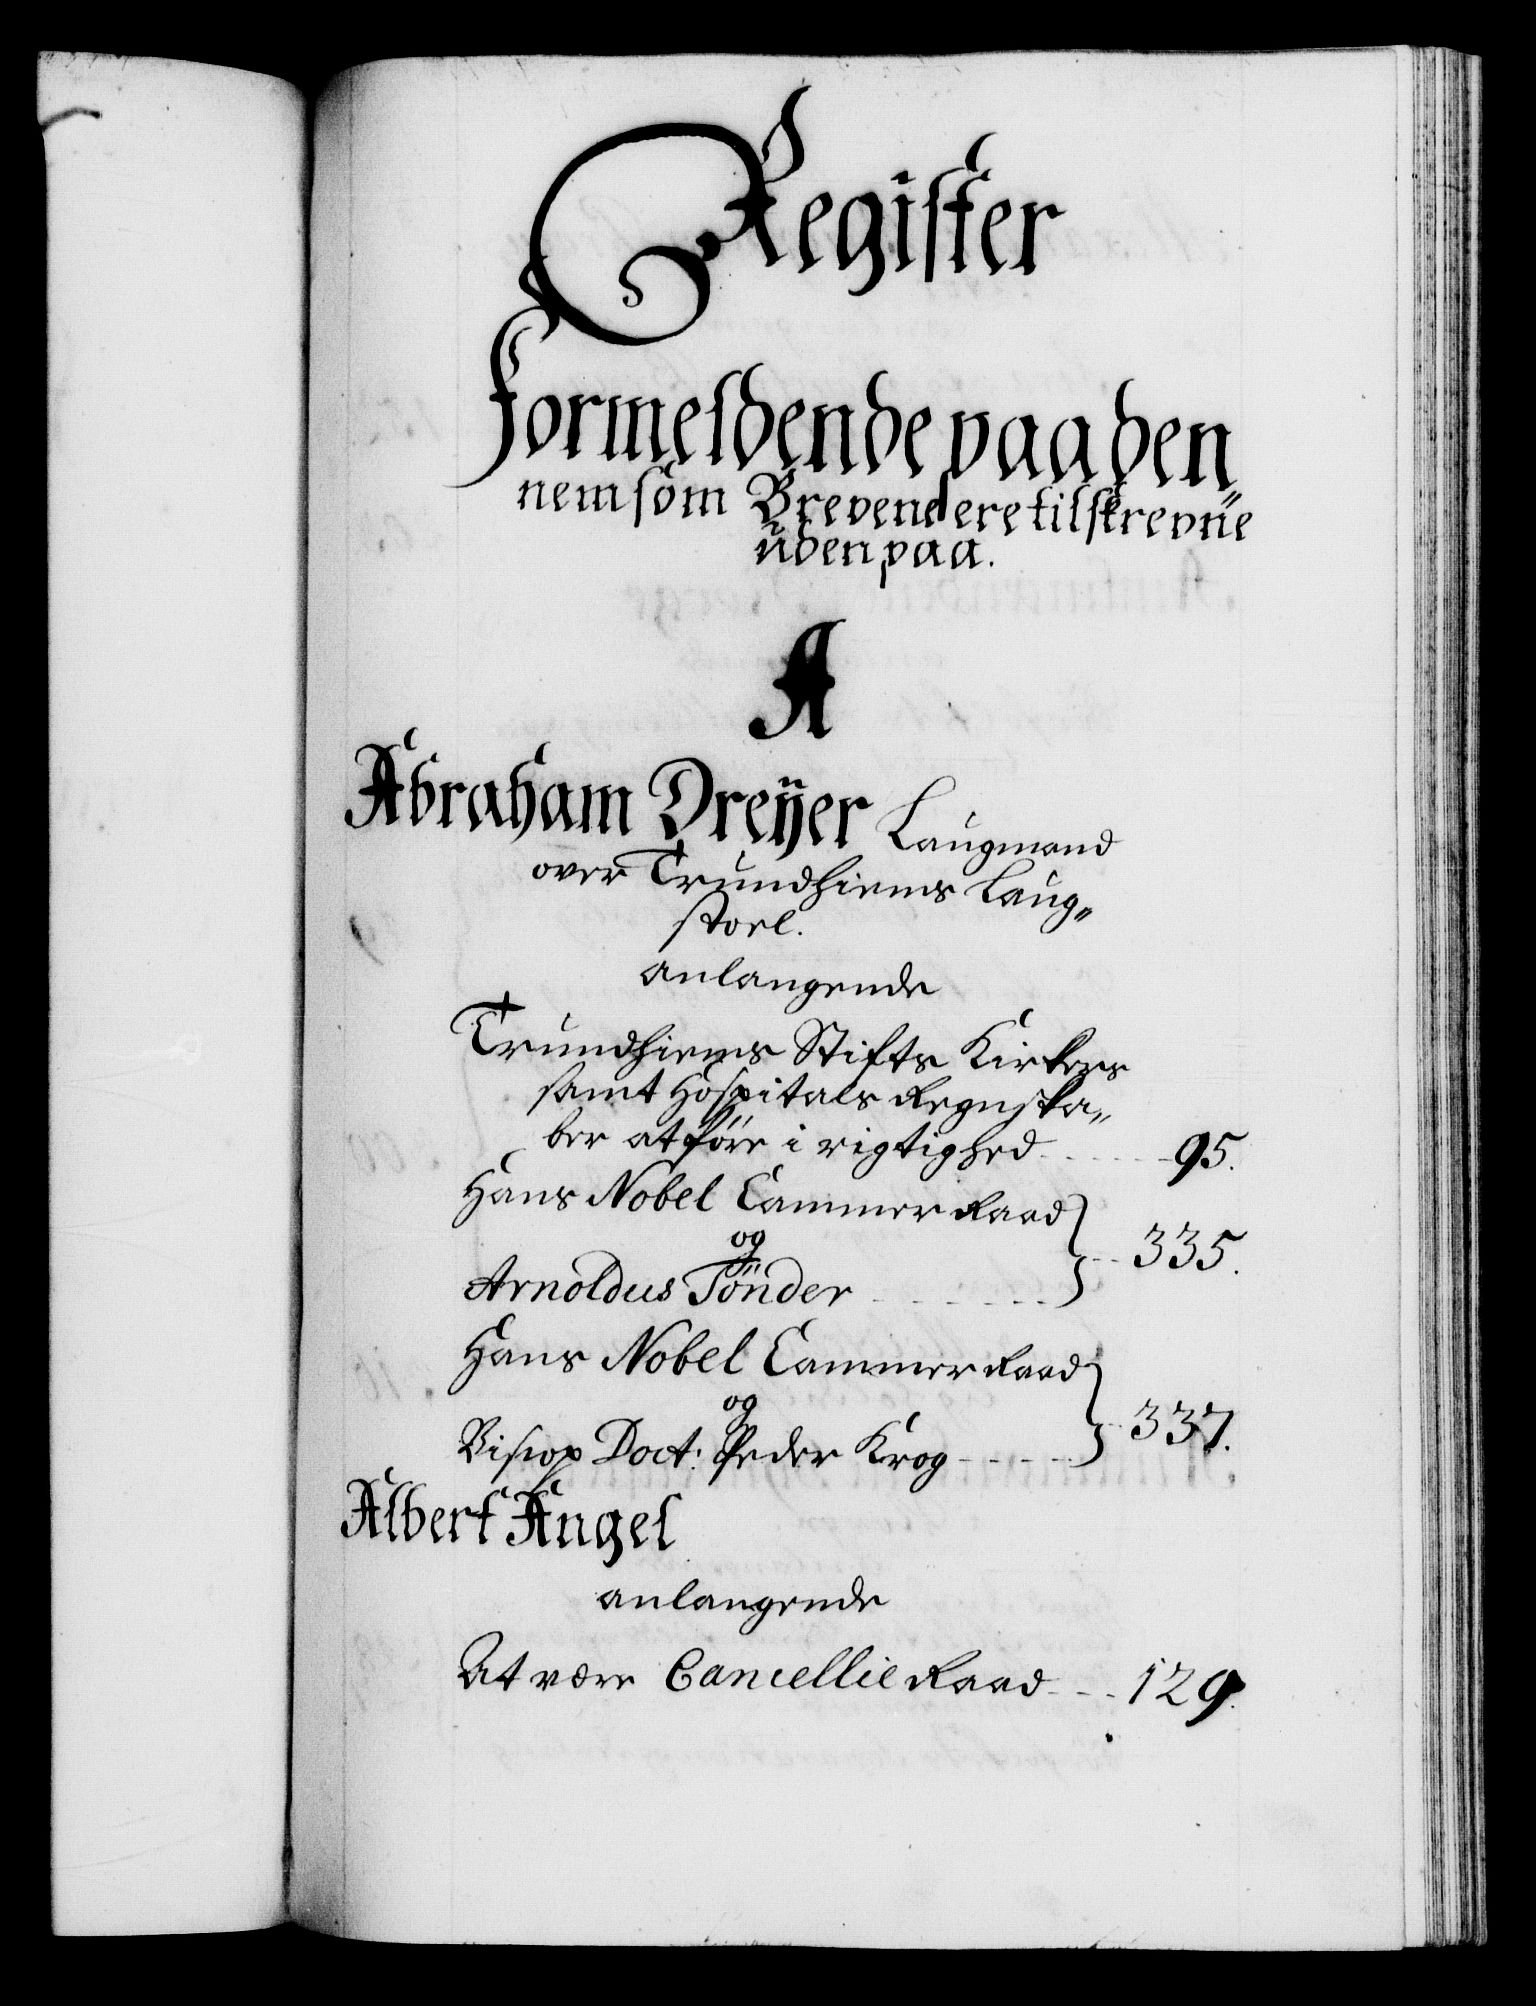 Register
Formeldende paa den
nem som Brevene ere tilskrevne
uden paa.
A
Abraham Dreÿer Laugmand
over Trundhiems Laug„
stoel.
anlangende
Trundhiems Stifts Kirkers
samt Hospitals Regnska„
ber at føre i rigtighed 95.
Hans Nobel Cammer Raad
og
335.
Arnoldus Tönder
Hans Nobel Cammer Raad
og
337.
Bisop Doct: Peder Krog
Albert Angel
anlangende
At være Cancellie Raad 129.